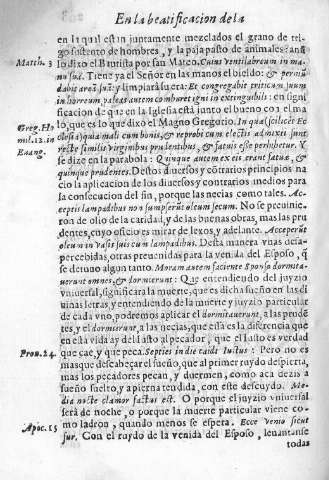 En la beatificacion de la
en la qual estàn juntamente mezclados el grano de tri-
go sustento de hombres, y la paja pasto de animales: assi
Matth. 3 lo dixo el Bautista por san Mateo. Cuius ventilabrum in ma-
nu sua. Tiene ya el Señor en las manos el bieldo: & permũ
dabit areã suã: y limpiarà su era: Et congregabit triticum suum
in horreum, paleas autem comburet igni in extinguibili: en signi
ficacion de que en la Iglesia està junto el bueno con el ma
Greg. Ho lo, que es lo que dixo el Magno Gregorio. In qua (scilicet Ec
mil. 12. in clesia) quia mali cum bonis, & reprobi cum electis admixti sunt
Euang. recte similis virginibus prudentibus, & fatuis esse perhibetur. Y
se dize en la parabola: Quinque autem ex eis erant fatuæ, &
quinque prudentes. Destos diuersos y contrarios principios na
cio la aplicacion de los diuersos y contrarios medios para
la consecucion del fin, porque las necias como tales. Ac-
ceptis lampadibus non sumpserũt oleum secum. No se preuinie-
ron de olio de la caridad, y de las buenas obras, mas las pru
dentes, cuyo oficio es mirar de lexos, y adelante. Acceperũt
oleum in vasis suis cum lampadibus. Desta manera vnas desa-
percebidas, otras preuenidas para la venida del Esposo, q̃
se detuuo algun tanto. Moram autem faciente Sponso dormita-
uerunt omnes, & dormierunt: Que entendiendo del juyzio
vniuersal, significarà la muerte, que es dicha sueño en las di
uinas letras, y entendiendo de la muerte y juyzio particular
de cada vno, podremos aplicar el dormitauerunt, a las pruden
tes, y el dormierunt, a las necias, que està es la diferencia que
en esta vida ay del justo al pecador, que el justo es verdad
Prou. 24. que cae, y que peca. Septies in die cadit iustus: Pero no es
mas que descabeçar el sueño, que al primer ruydo despierta,
mas los pecadores pecan, y duermen, como acà dezis a
sueño suelto, y a pierna tendida, con este descuydo. Me-
dia nocte clamor factus est. O porque el juyzio vniuersal
serà de noche, o porque la muerte particular viene co-
Apoc. 15 mo ladron, quando menos se espera. Ecce venio sicut
fur. Con el ruydo de la venida del Esposo, leuantanse
todas